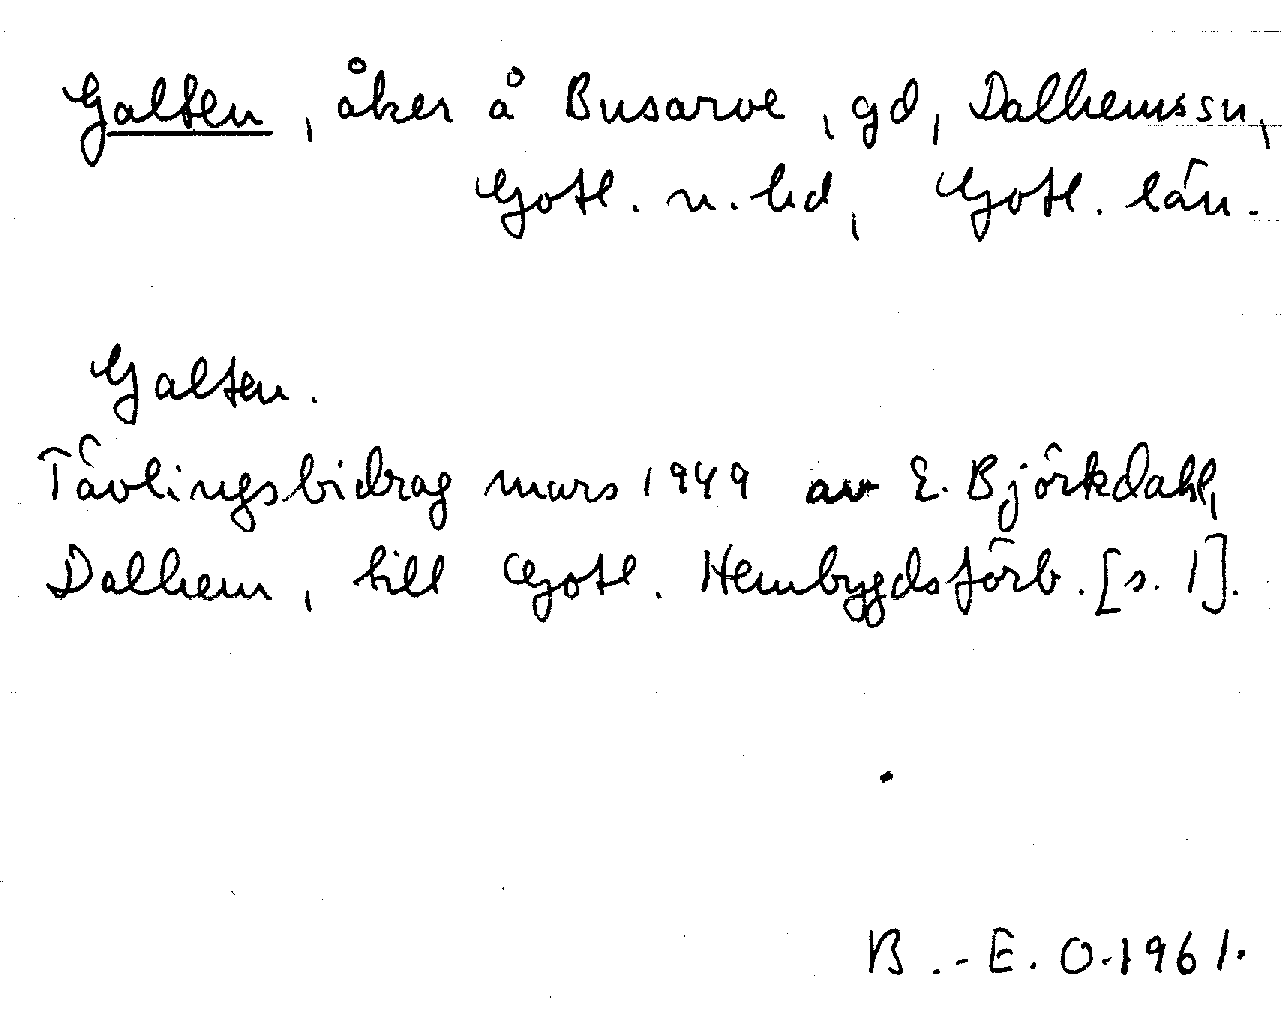 Galten, åker å Busarve, gd, Dalhems sn,
Gotl. n. hd, Gotl. län.
Galten.
Tävlingsbidrag mars 1949 av E. Björkdahl,
Dalhem, till Gotl. Hembygdsförb. [s. 1].
B.-E. O. 1961.